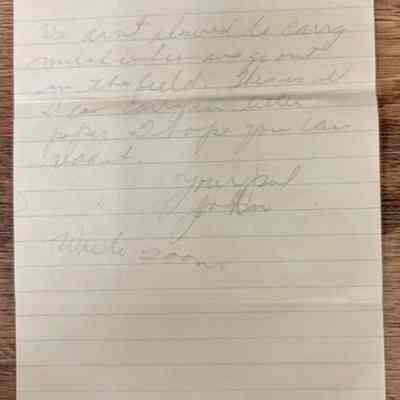 We aint alowed to carry
much when we go out
in the field. This is all
I can carry in letter
paper. I hope you can
read it.
Your pal
John
Write soon.